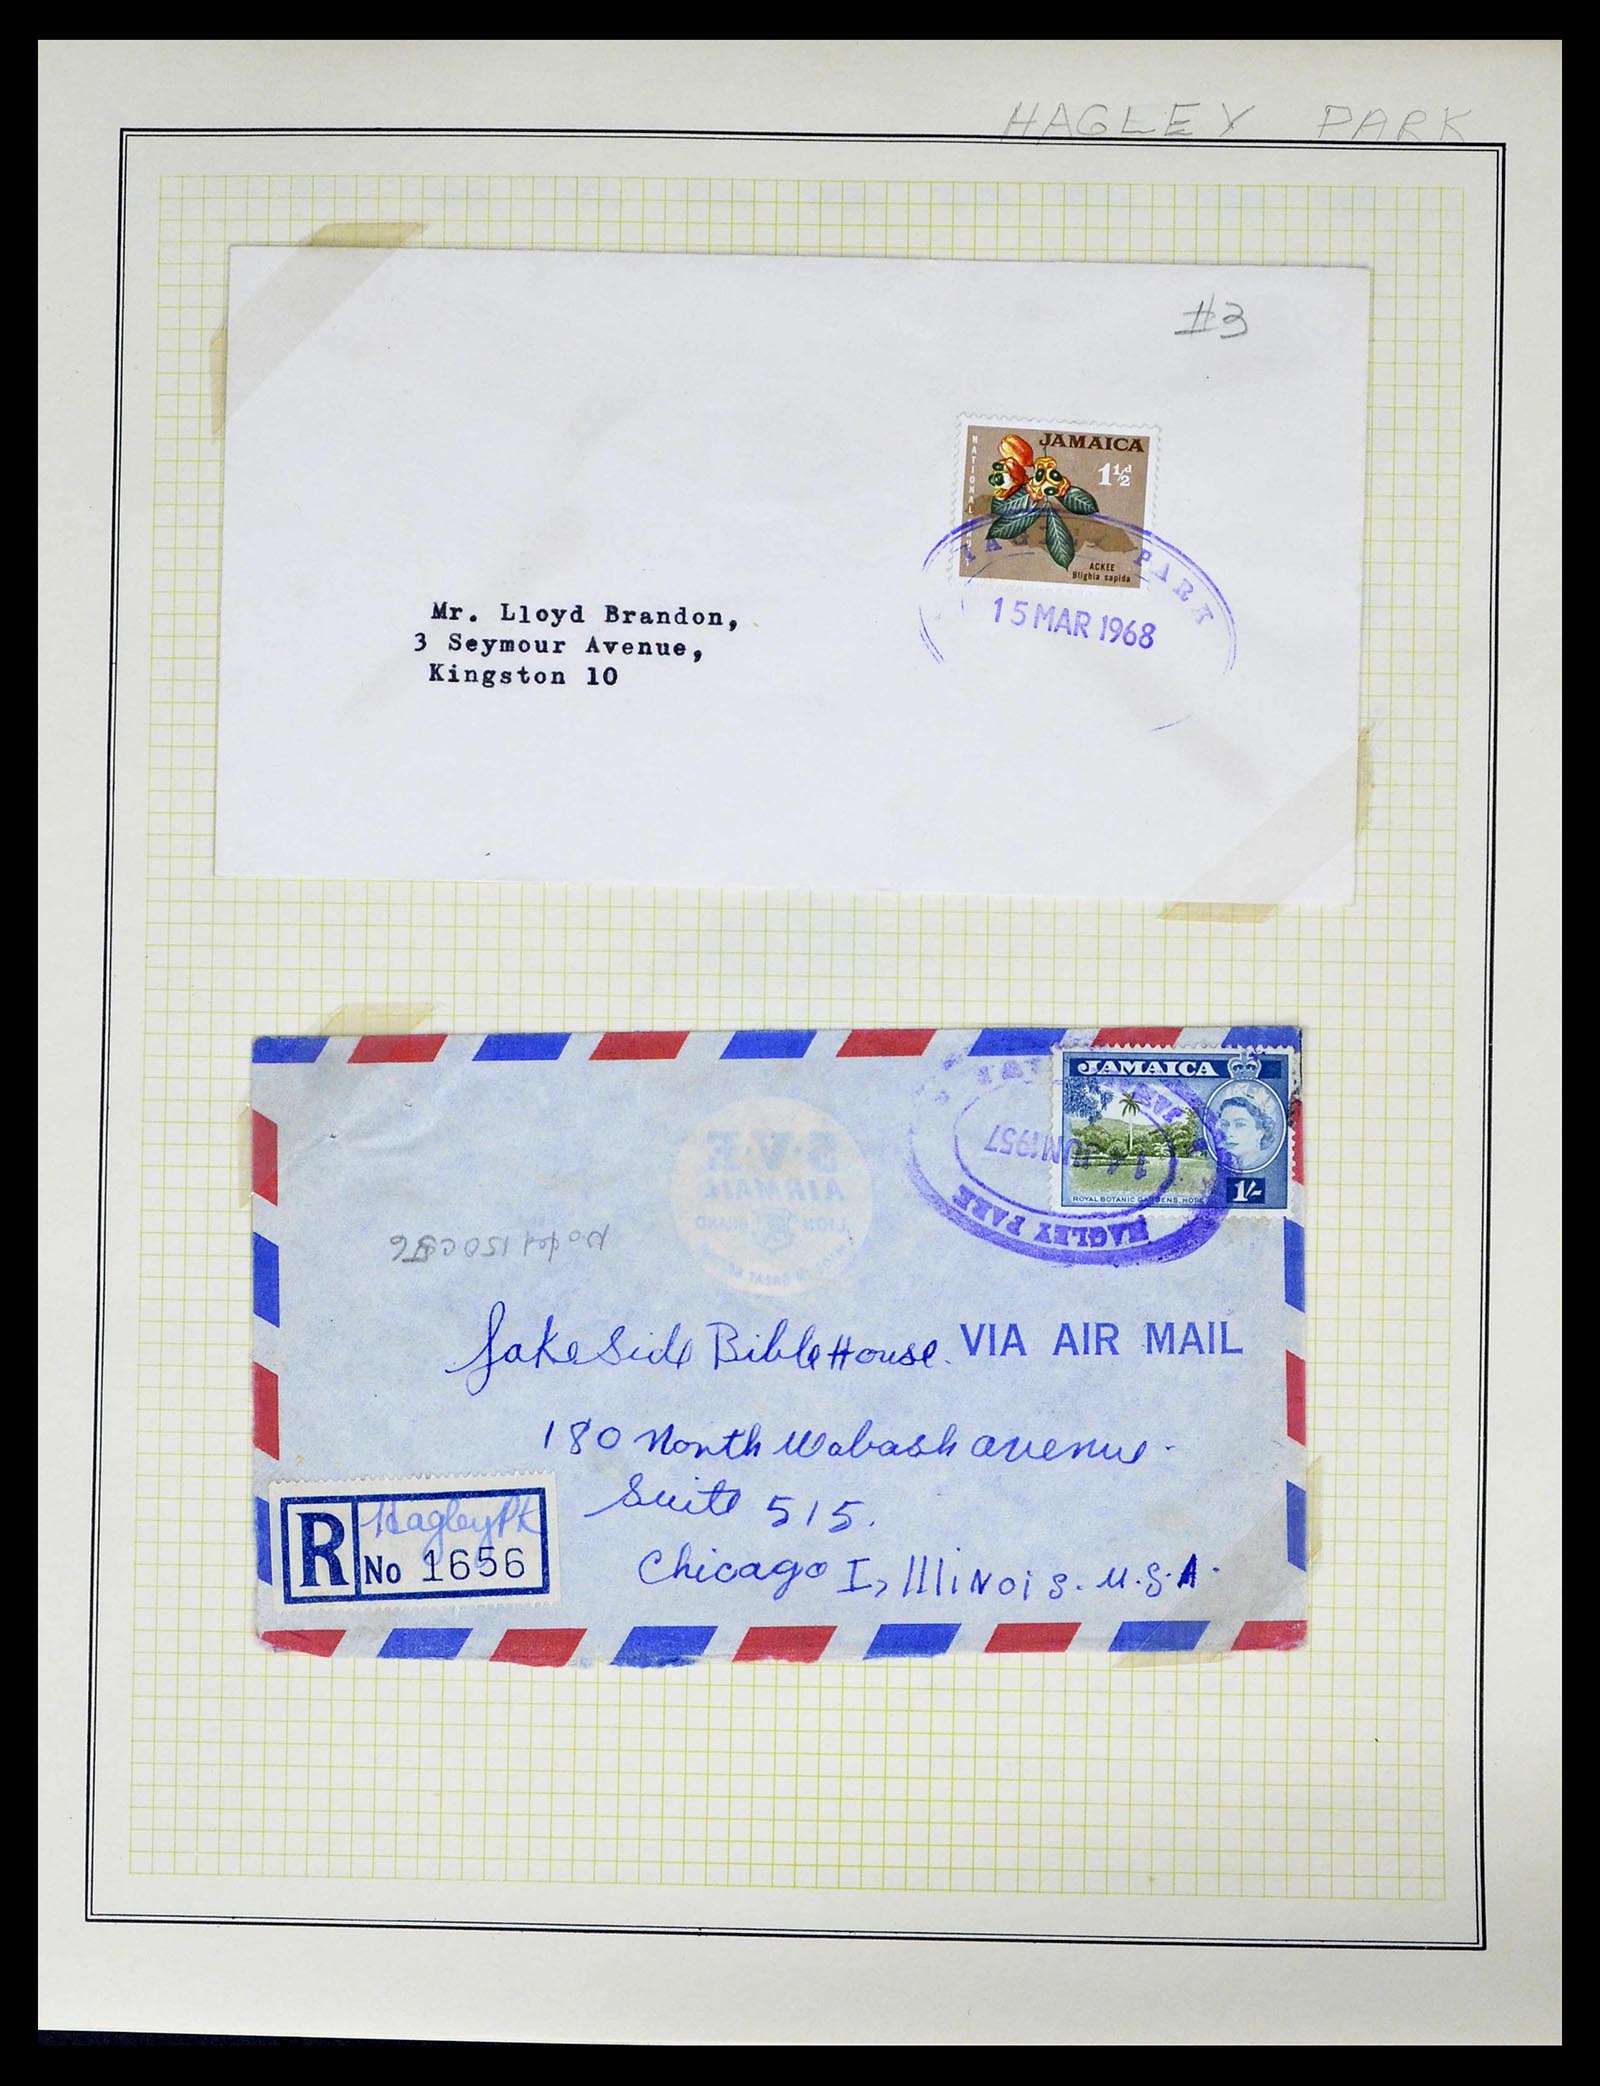 HAGLEY PARK
#3
JAMAICA
1½d
NATIONAL
ACKEE
Blighia sapida
HAGLEY PARK
15 MAR 1968
Mr. Lloyd Brandon,
3 Seymour Avenue,
Kingston 10
JAMAICA
ROYAL BOTANIC GARDENS, HOPE
1/-
14 JUN 1957
HAGLEY PARK
S.V.E
AIRMAIL
LION BRAND
LakeSide Bible House.
VIA AIR MAIL
180 North Wabash avenue.
Suite 515.
Chicago I, Illinois. U.S.A.
R
Hagley Pk
No 1656